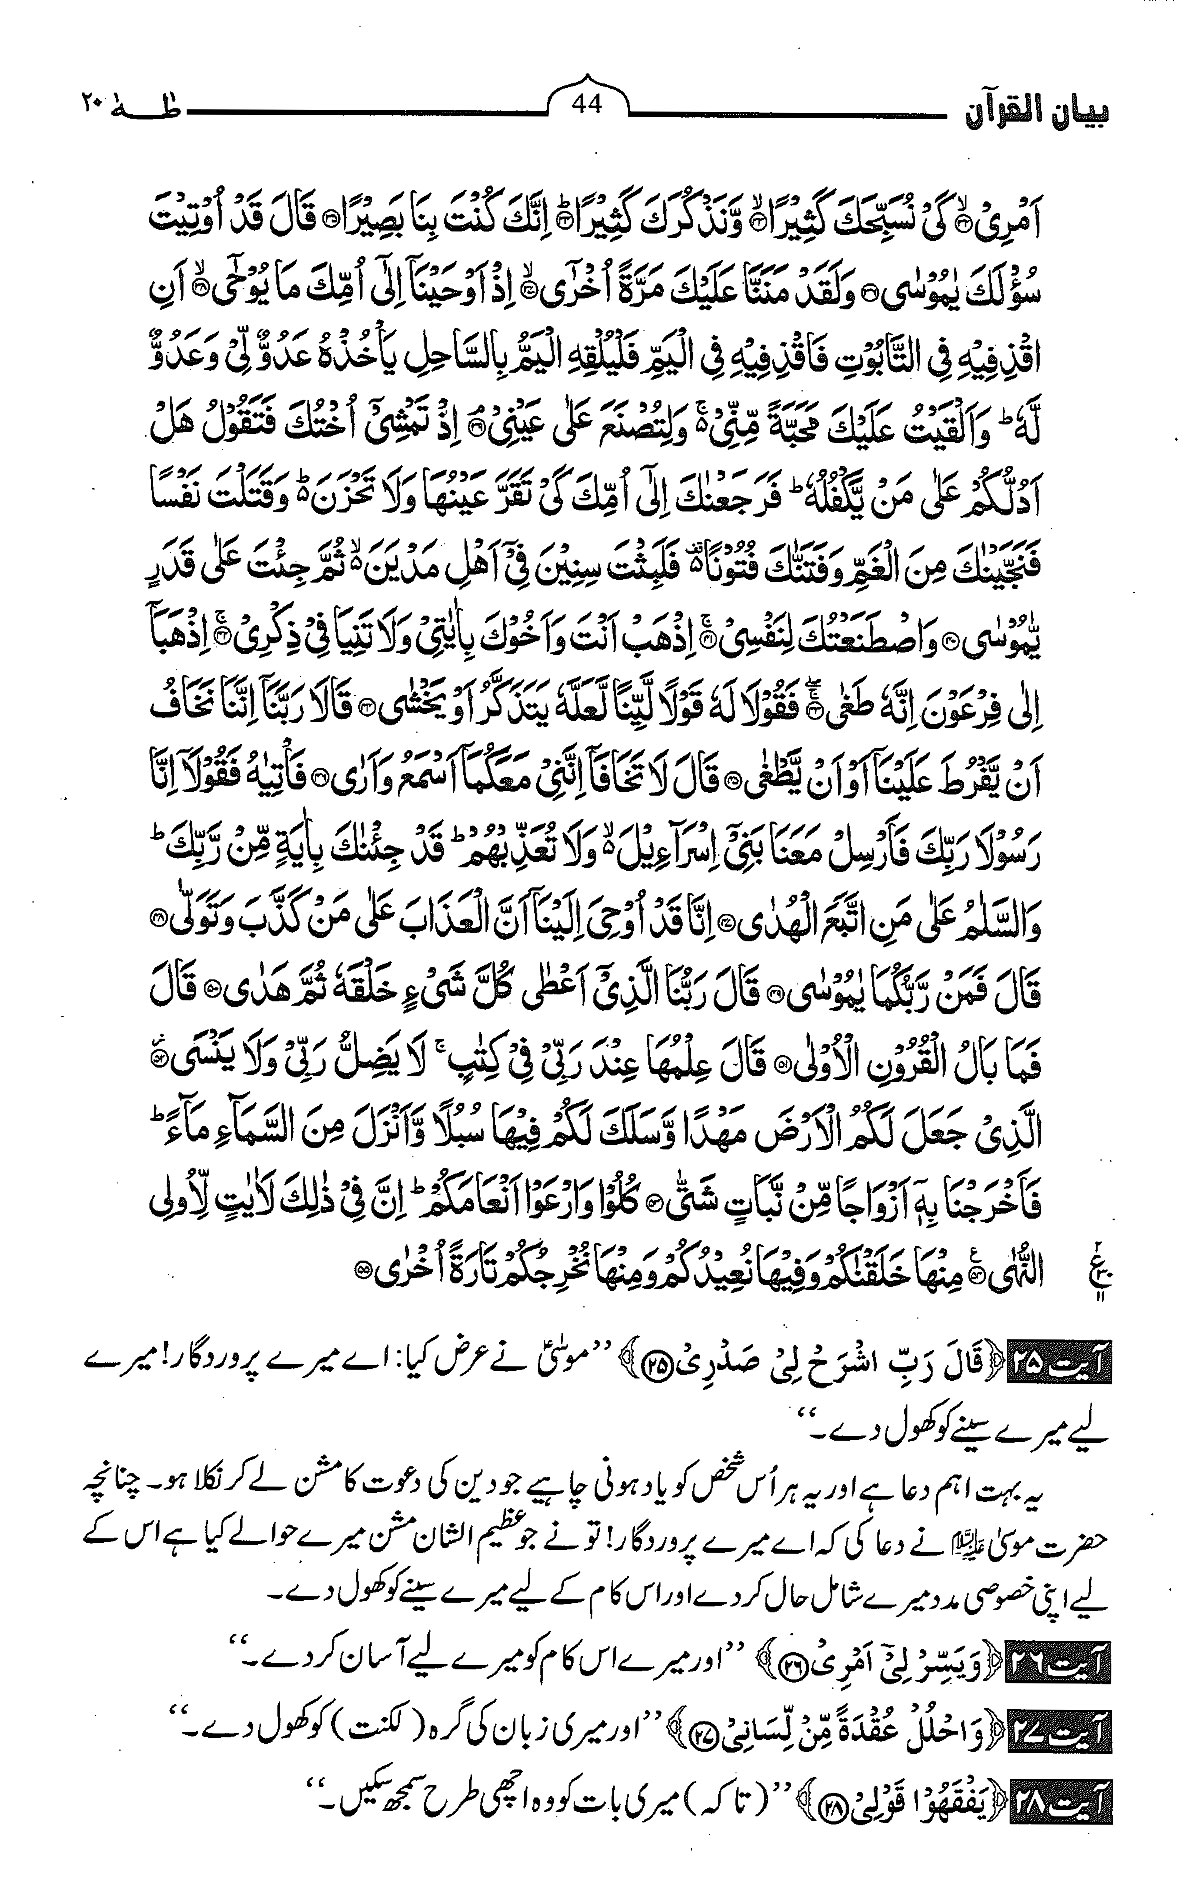 بیان القرآن 44 طٰہٰ ۲۰
اَمْرِیْ﴿۳۲﴾ کَیْ نُسَبِّحَكَ كَثِیْرًا﴿۳۳﴾ وَّنَذْكُرَكَ كَثِیْرًا﴿۳۴﴾ اِنَّكَ كُنْتَ بِنَا بَصِیْرًا﴿۳۵﴾ قَالَ قَدْ اُوْتِیْتَ
سُؤْلَكَ یٰمُوْسٰی﴿۳۶﴾ وَلَقَدْ مَنَنَّا عَلَیْكَ مَرَّةً اُخْرٰۤی﴿۳۷﴾ اِذْ اَوْحَیْنَاۤ اِلٰۤی اُمِّكَ مَا یُوْحٰۤی﴿۳۸﴾ اَنِ
اقْذِفِیْهِ فِی التَّابُوْتِ فَاقْذِفِیْهِ فِی الْیَمِّ فَلْیُلْقِهِ الْیَمُّ بِالسَّاحِلِ یَاْخُذْهُ عَدُوٌّ لِّیْ وَعَدُوٌّ
لَّهٗ ؕ وَاَلْقَیْتُ عَلَیْكَ مَحَبَّةً مِّنِّیْ ۚ۬ وَلِتُصْنَعَ عَلٰی عَیْنِیْ﴿۳۹﴾ اِذْ تَمْشِیْۤ اُخْتُكَ فَتَقُوْلُ هَلْ
اَدُلُّكُمْ عَلٰی مَنْ یَّكْفُلُهٗ ؕ فَرَجَعْنٰكَ اِلٰۤی اُمِّكَ كَیْ تَقَرَّ عَیْنُهَا وَلَا تَحْزَنَ ؕ۬ وَقَتَلْتَ نَفْسًا
فَنَجَّیْنٰكَ مِنَ الْغَمِّ وَفَتَنّٰكَ فُتُوْنًا ۬۫ فَلَبِثْتَ سِنِیْنَ فِیْۤ اَهْلِ مَدْیَنَ ۙ۬ ثُمَّ جِئْتَ عَلٰی قَدَرٍ
یّٰمُوْسٰی﴿۴۰﴾ وَاصْطَنَعْتُكَ لِنَفْسِیْ﴿۴۱﴾ۚ اِذْهَبْ اَنْتَ وَاَخُوْكَ بِاٰیٰتِیْ وَلَا تَنِیَا فِیْ ذِكْرِیْ﴿۴۲﴾ۚ اِذْهَبَاۤ
اِلٰی فِرْعَوْنَ اِنَّهٗ طَغٰی﴿۴۳﴾ۚۖ فَقُوْلَا لَهٗ قَوْلًا لَّیِّنًا لَّعَلَّهٗ یَتَذَكَّرُ اَوْ یَخْشٰی﴿۴۴﴾ قَالَا رَبَّنَاۤ اِنَّنَا نَخَافُ
اَنْ یَّفْرُطَ عَلَیْنَاۤ اَوْ اَنْ یَّطْغٰی﴿۴۵﴾ قَالَ لَا تَخَافَاۤ اِنَّنِیْ مَعَكُمَاۤ اَسْمَعُ وَاَرٰی﴿۴۶﴾ فَاْتِیٰهُ فَقُوْلَاۤ اِنَّا
رَسُوْلَا رَبِّكَ فَاَرْسِلْ مَعَنَا بَنِیْۤ اِسْرَآءِیْلَ ۙ۬ وَلَا تُعَذِّبْهُمْ ؕ قَدْ جِئْنٰكَ بِاٰیَةٍ مِّنْ رَّبِّكَ ؕ
وَالسَّلٰمُ عَلٰی مَنِ اتَّبَعَ الْهُدٰی﴿۴۷﴾ اِنَّا قَدْ اُوْحِیَ اِلَیْنَاۤ اَنَّ الْعَذَابَ عَلٰی مَنْ كَذَّبَ وَتَوَلّٰی﴿۴۸﴾
قَالَ فَمَنْ رَّبُّكُمَا یٰمُوْسٰی﴿۴۹﴾ قَالَ رَبُّنَا الَّذِیْۤ اَعْطٰی كُلَّ شَیْءٍ خَلْقَهٗ ثُمَّ هَدٰی﴿۵۰﴾ قَالَ
فَمَا بَالُ الْقُرُوْنِ الْاُوْلٰی﴿۵۱﴾ قَالَ عِلْمُهَا عِنْدَ رَبِّیْ فِیْ كِتٰبٍ ۚ لَا یَضِلُّ رَبِّیْ وَلَا یَنْسَی﴿۵۲﴾ؗ
الَّذِیْ جَعَلَ لَكُمُ الْاَرْضَ مَهْدًا وَّسَلَكَ لَكُمْ فِیْهَا سُبُلًا وَّاَنْزَلَ مِنَ السَّمَآءِ مَآءً ؕ
فَاَخْرَجْنَا بِهٖۤ اَزْوَاجًا مِّنْ نَّبَاتٍ شَتّٰی﴿۵۳﴾ كُلُوْا وَارْعَوْا اَنْعَامَكُمْ ؕ اِنَّ فِیْ ذٰلِكَ لَاٰیٰتٍ لِّاُولِی
النُّهٰی﴿۵۴﴾ع مِنْهَا خَلَقْنٰكُمْ وَفِیْهَا نُعِیْدُكُمْ وَمِنْهَا نُخْرِجُكُمْ تَارَةً اُخْرٰی﴿۵۵﴾
آیت ۲۵ ﴿قَالَ رَبِّ اشْرَحْ لِیْ صَدْرِیْ﴿۲۵﴾﴾ ’’موسٰیؑ نے عرض کیا: اے میرے پروردگار! میرے
لیے میرے سینے کو کھول دے۔‘‘
یہ بہت اہم دعا ہے اور یہ ہر اُس شخص کو یاد ہونی چاہیے جو دین کی دعوت کا مشن لے کر نکلا ہو۔ چنانچہ
حضرت موسیٰ علیہ السلام نے دعا کی کہ اے میرے پروردگار! تو نے جو عظیم الشان مشن میرے حوالے کیا ہے اس کے
لیے اپنی خصوصی مدد میرے شامل حال کر دے اور اس کام کے لیے میرے سینے کو کھول دے۔
آیت ۲۶ ﴿وَیَسِّرْ لِیْۤ اَمْرِیْ﴿۲۶﴾﴾ ’’اور میرے اس کام کو میرے لیے آسان کر دے۔‘‘
آیت ۲۷ ﴿وَاحْلُلْ عُقْدَةً مِّنْ لِّسَانِیْ﴿۲۷﴾﴾ ’’اور میری زبان کی گرہ (لکنت) کو کھول دے۔‘‘
آیت ۲۸ ﴿یَفْقَهُوْا قَوْلِیْ﴿۲۸﴾﴾ ’’(تاکہ) میری بات کو وہ اچھی طرح سمجھ سکیں۔‘‘